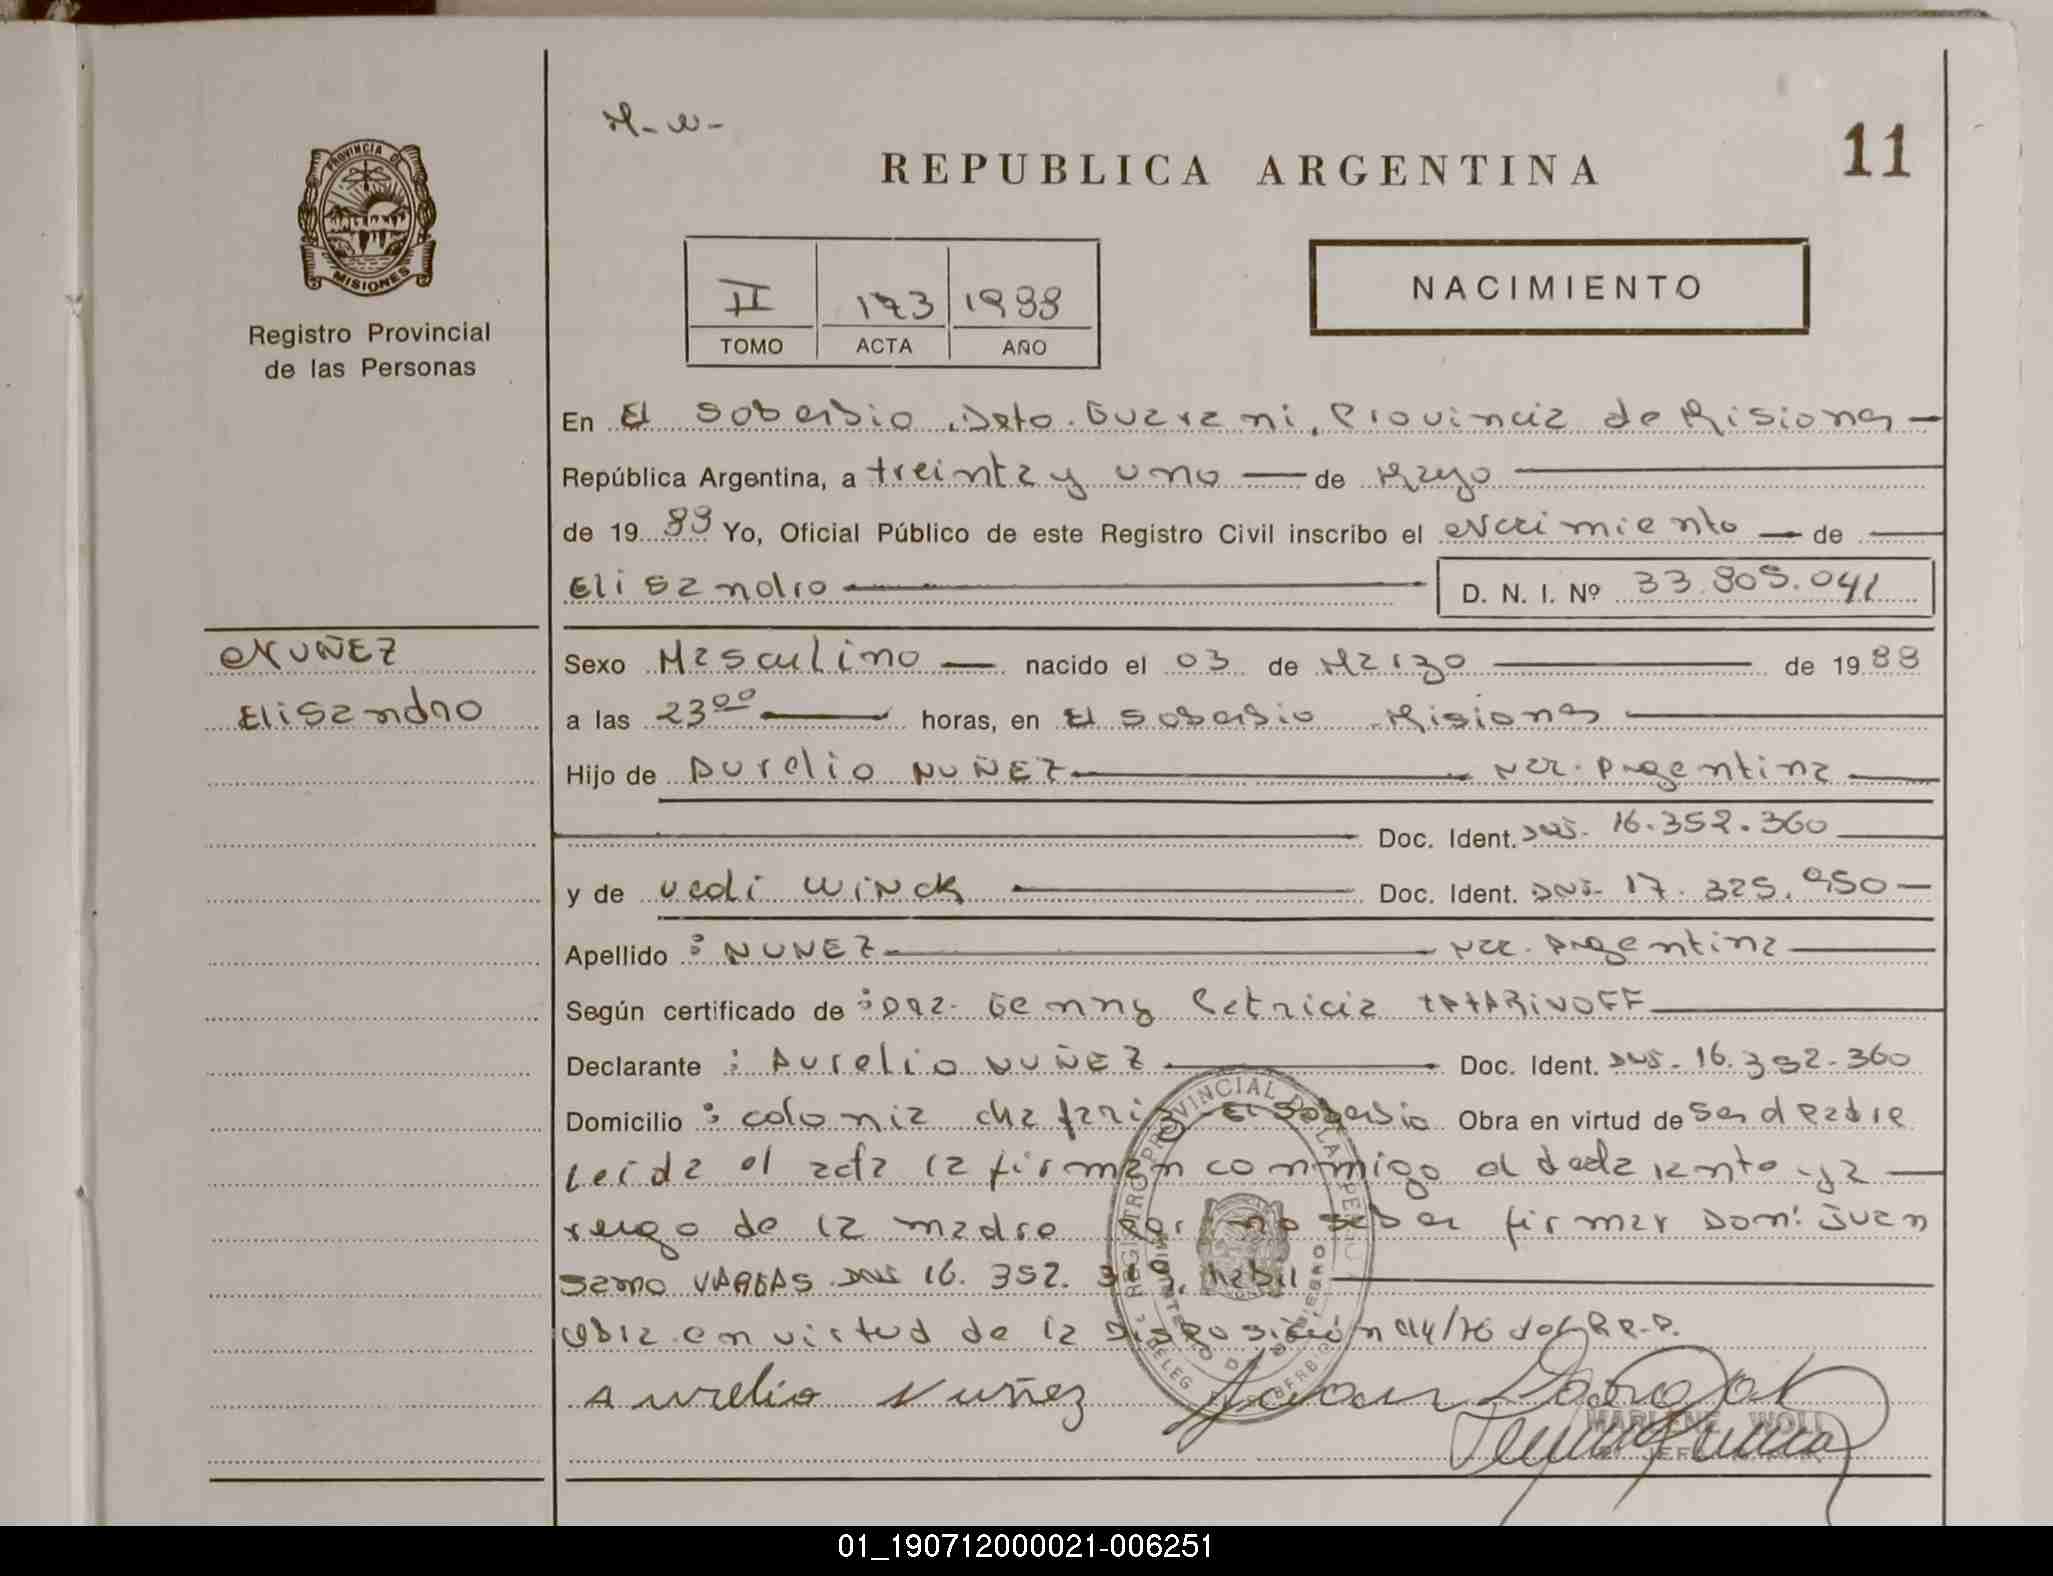 M-N-
REPUBLICA ARGENTINA
11
PROVINCIA DE
MISIONES
Registro Provincial
de las Personas
II 173 1988
TOMO ACTA AÑO
NACIMIENTO
En El Soberbio, Dpto. Guarani, Provincia de Misiones
República Argentina, a treinta y uno de Mayo
de 1988 Yo, Oficial Público de este Registro Civil inscribo el Nacimiento de
Elisandro D. N. I. Nº 33.809.041
NUÑEZ
Elisandro
Sexo Masculino nacido el 03 de Marzo de 1988
a las 23⁰⁰ horas, en El Soberbio Misiones
Hijo de Aurelio NUÑEZ Nac. Argentina
Doc. Ident. DNI. 16.352.360
y de Vedi WINCK Doc. Ident. DNI. 17.325.950
Apellido : NUÑEZ Nac. Argentina
Según certificado de : Dra. Genny Patricia TATARINOFF
Declarante : Aurelio NUÑEZ Doc. Ident. DNI. 16.352.360
Domicilio : colonia chafariz El Soberbio Obra en virtud de Ser el Padre
Leida el acta la firman conmigo el declarante y a
ruego de la madre por no saber firmar Don: Juan
VARGAS DNI 16.352.319, habil
Obra en virtud de la Disposición 014/76 del R.P.P.
Aurelio Nuñez
MARLENE WOLL
01_190712000021-006251